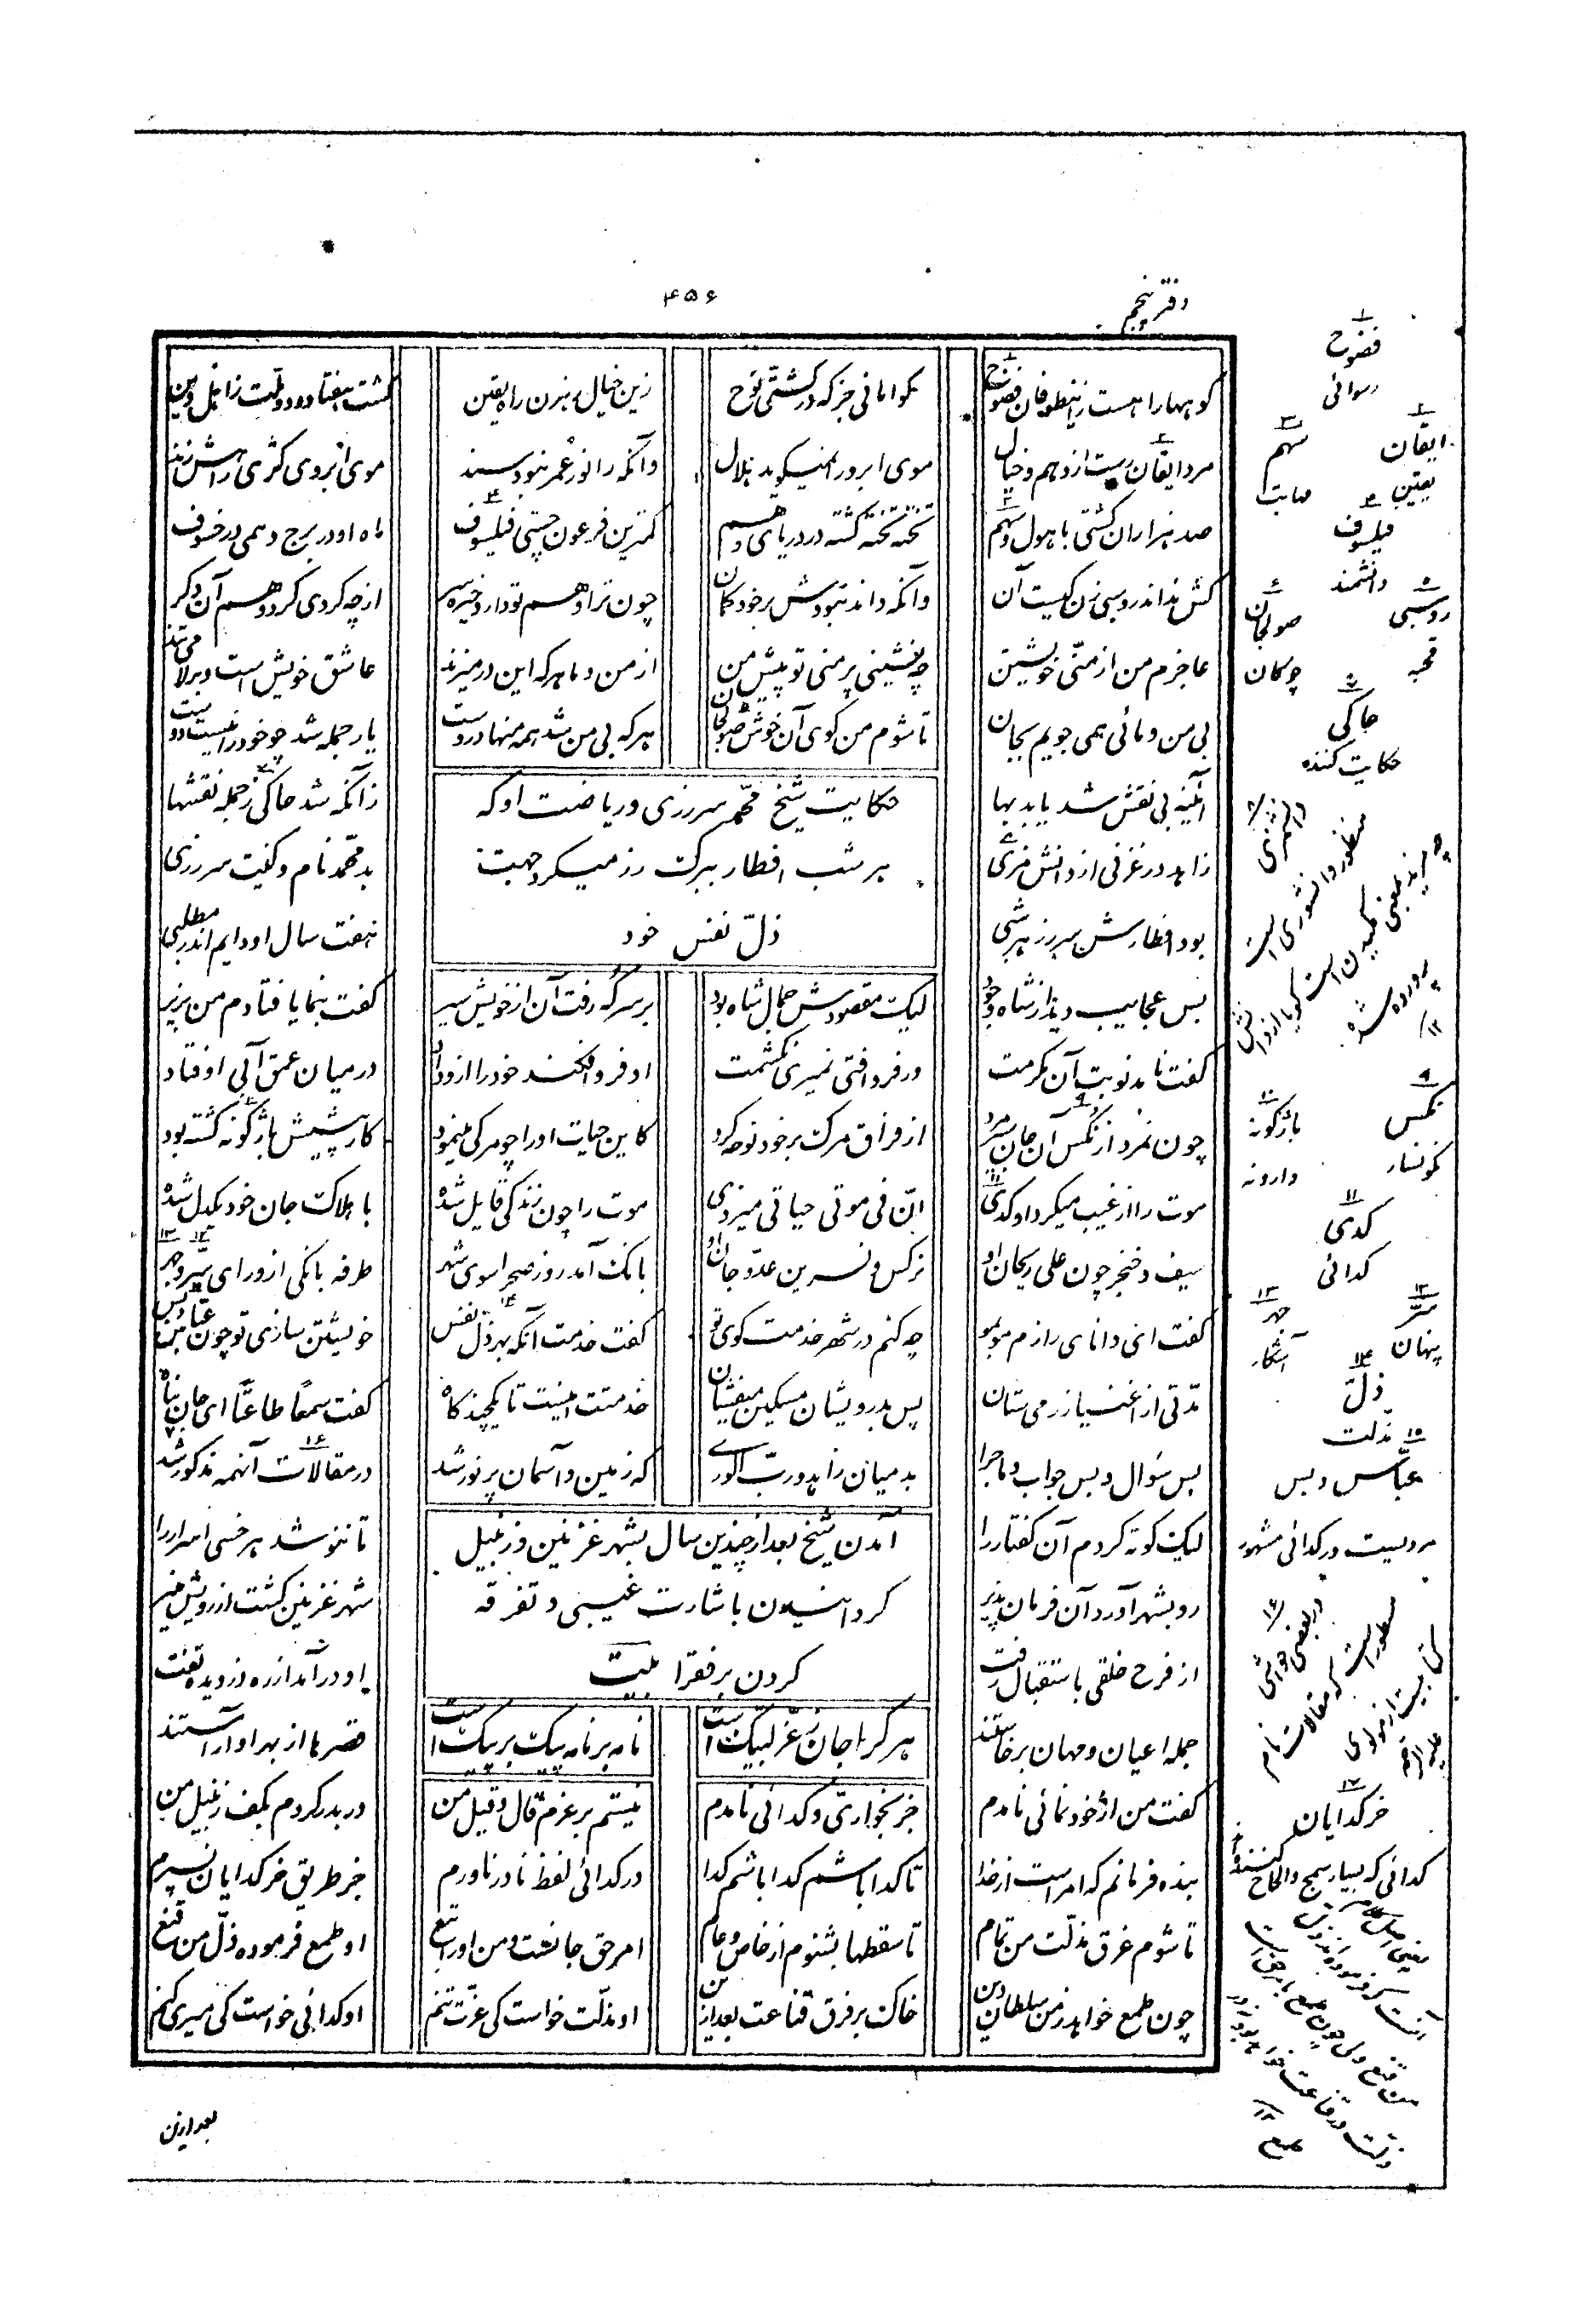 دفتر پنجم
۴۵۶
کوهها را هست زین طوفان فضوح کو امانی جز که در کشتی نوح زین خیال رهزن راه یقین گشت هفتاد و دو ملت ز اهل دین
مرد ایقان رست از وهم و خیال موی ابرو را نمیگوید هلال وآنکه را نور عمر نبود سند موی ابروی کژی راهش زند
صد هزاران کشتی با هول و سهم تخته تخته گشته در دریای وهم کمترین فرعون چستی فیلسوف ماه او در برج وهمی در خسوف
کش نداند روسپی زن کیست آن وآنکه داند نبودش بر خود گمان چون ترا وهم تو دارد خیره سر از چه گردی گرد وهم آن دگر
عاجزم من از منی خویشتن چه نشینی پر منی تو پیش من از من و ما هر که این در میزند عاشق خویش است و بر لا می تند
بی من و مائی همی جویم بجان تا شوم من گوی آن خوش صولجان هر که بی من شد همه منها دروست یار جمله شد چو خود را نیست دوست
آئینه بی نقش شد یابد بها زآنکه شد حاکی ز جمله نقشها
حکایت شیخ محمد سررزی و ریاضت او که
هر شب افطار ببرگ رز میکرد جهت
ذلّ نفس خود
زاهد در غزنی از دانش مزی بد محمد نام و کنیت سررزی
بود افطارش سررز هر شبی هفت سال او دایم اندر مطلبی
بس عجایب دید از شاه وجود لیک مقصودش جمال شاه بود بر سر که رفت آن از خویش سیر گفت بنما یا فتادم من بزیر
گفت نامد نوبت آن مکرمت ور فرو افتی نمیری نکشمت او فرو افکند خود را از وداد در میان عمق آبی اوفتاد
چون نمرد از نکس آن جان سیر مرد از فراق مرگ بر خود نوحه کرد کاین حیات او را چو مرگی مینمود کار پیشش باژگونه گشته بود
موت را از غیب میکرد او کدی انّ فی موتی حیاتی میزدی موت را چون زندگی قابل شده با هلاک جان خود یکدل شده
سیف و خنجر چون علی ریحان او نرگس و نسرین عدو جان او بانگ آمد رو ز صحرا سوی شهر طرفه بانگی از ورای سرّ و جهر
گفت ای دانای رازم مو بمو چه کنم در شهر خدمت گوی تو گفت خدمت آنکه بهر ذلّ نفس خویشتن سازی تو چون عبّاس دبس
مدّتی از اغنیا زر می ستان پس بدرویشان مسکین میفشان خدمتت اینست تا یکچند گاه گفت سمعاً طاعةً ای جان پناه
بس سؤال و بس جواب و ماجرا بد میان زاهد و ربّ الوری که زمین و آسمان پر نور شد در مقالات آنهمه مذکور شد
لیک کوته کردم آن گفتار را تا ننوشد هر خسی اسرار را
آمدن شیخ بعد از چندین سال بشهر غزنین و زنبیل
گردانیدن باشارت غیبی و تفرقه
کردن بر فقرا بیت
رو بشهر آورد آن فرمان پذیر شهر غزنین گشت از رویش منیر
از فرح خلقی باستقبال رفت او در آمد از ره دزدیده تفت
هر که را جان ز عزّ لبیک است نامه بر نامه پیک بر پیک است
جمله اعیان و مهان برخاستند قصرها از بهر او آراستند
گفت من از خود نمائی نامدم جز بخواری و گدائی نامدم نیستم بر عزم قال و قیل من در بدر گردم بکف زنبیل من
بنده فرمانم که امر است از خدا تا گدا باشم گدا باشم گدا در گدائی لفظ نادر ناورم جز طریق خر گدایان نسپرم
تا شوم غرق مذلّت من تمام تا سقطها بشنوم از خاص و عام امر حق جانست و من او را تبع او طمع فرموده ذلّ من قنع
چون طمع خواهد ز من سلطان دین خاک بر فرق قناعت بعد ازین او مذلّت خواست کی عزّت تنم او گدائی خواست کی میری کنم
بعد ازین
۱ فضوح
رسوائی
۲ ایقان
یقین
۳ سهم
مهابت
۴ فیلسوف
دانشمند
۵ روسپی
قحبه
۶ صولجان
چوگان
۷ حاکی
حکایت کننده
۹ نکس
نگونسار
۱۰ باژگونه
وارونه
۱۱ کدی
گدائی
۱۲ سرّ
پنهان
۱۳ جهر
آشکار
۱۴ ذلّ
مذلت
۱۵ عبّاس دبس
مردیست در گدائی مشهور
۱۶ در بعضی حواشی
مسطور است که مقالات نام
کتابیست از مولوی
علیه الرحمه
۱۷ خر گدایان